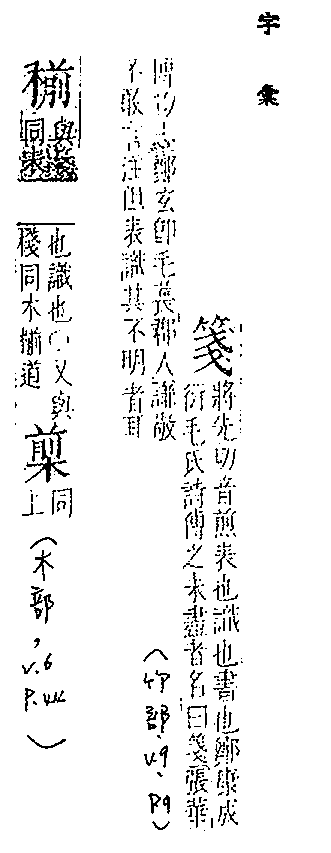 字彙
箋
將先切音煎表也識也書也鄭康成
衍毛氏詩傳之未盡者名曰箋張華
博物志鄭玄即毛萇郡人謙敬
不敢言注但表識其不明者耳
(竹部、v.9、P9)
椾
與箋
同表
也識也○又與
棧同木椾道
䉍同上
(木部,v.6
P.44)